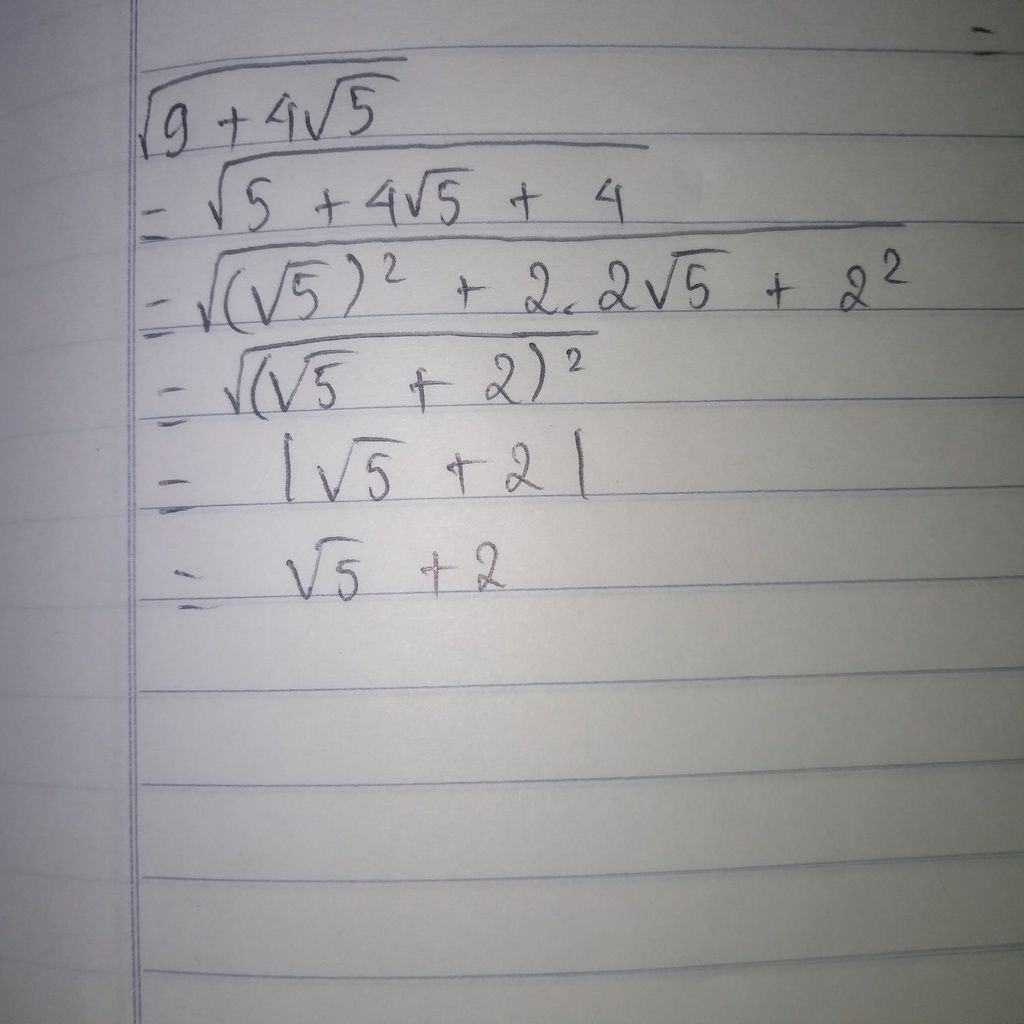 √(9 + 4√5)
= √(5 + 4√5 + 4)
= √((√5)² + 2.2√5 + 2²)
= √((√5 + 2)²)
= |√5 + 2|
= √5 + 2